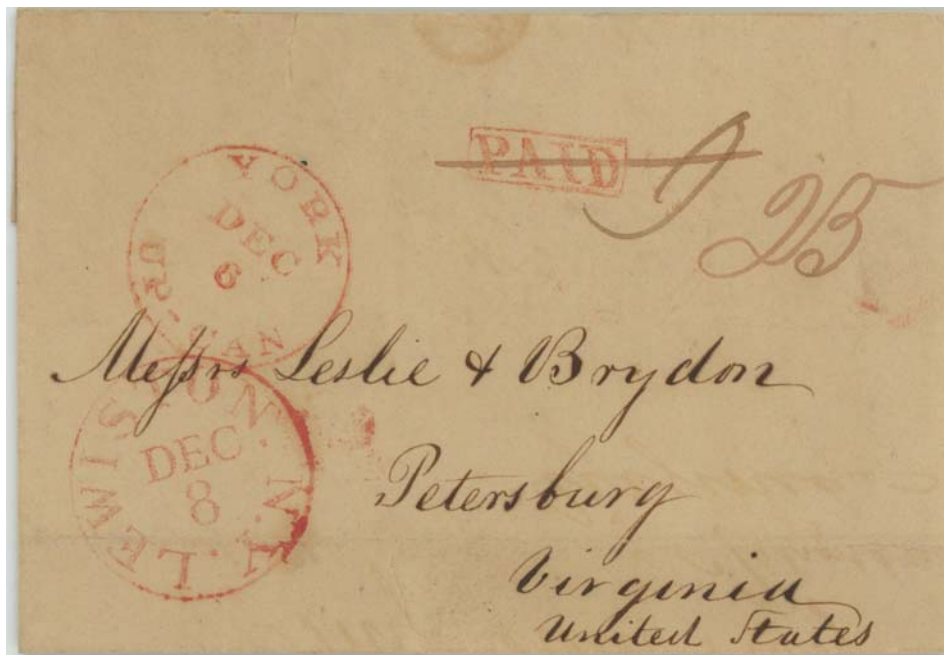 PAID 9
25
YORK
DEC
6
UP-CAN
Meſsrs Leslie & Brydon
LEWISTON. N.Y.
DEC
8
Petersburg
Virginia
United States